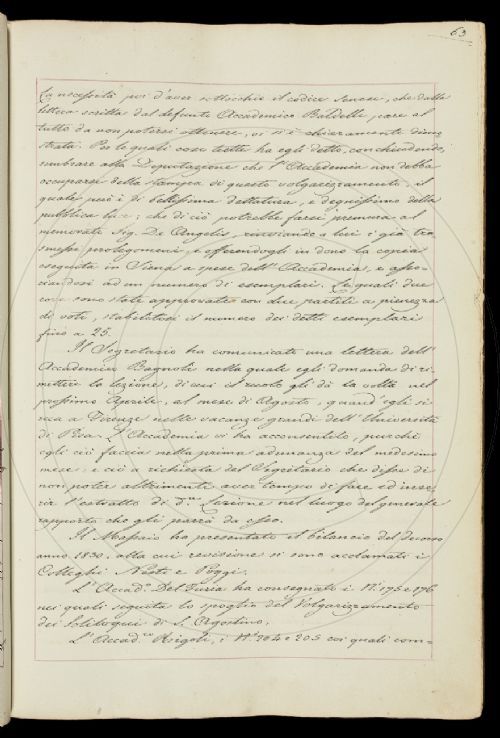 63
La necessità poi d'aver sottocchio il codice Senese, che dalla
lettera scritta dal defunto Accademico Baldelli, pare al
tutto da non potersi ottenere, vi si è chiaramente dimo
strata. Per le quali cose tutte ha egli detto, conchiudendo,
sembrare alla Deputazione che l'Accademia non debba
occuparsi della stampa di questo volgarizzamento, il
quale però è di bellissima dettatura, e degnissimo della
pubblica luce; che di ciò potrebbe farsi premura al
memorato Sig. De Angelis, rinviando a lui i già tra
smessi prolegomeni, e offerendogli in dono la copia
eseguita in Siena a spese dell'Accademia, e asso-
ciandosi ad un numero di esemplari. Le quali due
cose sono state approvate con due partiti a pienezza
di voti, stabilitosi il numero dei detti esemplari
fino a 25.
Il Segretario ha comunicato una lettera dell'
Accademico Bagnoli nella quale egli domanda di ri-
mettere la lezione, di cui il ruolo gli dà la volta nel
prossimo Aprile, al mese di Agosto, quand'egli si
trova a Firenze nelle vacanze grandi dell'Università
di Pisa. L'Accademia vi ha acconsentito, purchè
egli ciò faccia nella prima adunanza del medesimo
mese; e ciò a richiesta del Segretario che disse di
non poter altrimenti aver tempo di fare ed inse-
rir l'estratto di d.ta Lezione nel luogo del generale
rapporto che gli parrà da esso.
Il Massaio ha presentato il bilancio del decorso
anno 1830. alla cui revisione si sono acclamati i
Colleghi Nesti e Poggi.
L'Accad.o Del Furia ha consegnato i N.i 175 e 176
nei quali seguita lo spoglio del Volgarizzamento
dei Soliloqui di S. Agostino.
L'Accad.co Rigoli, i N.i 204 e 205 coi quali com=